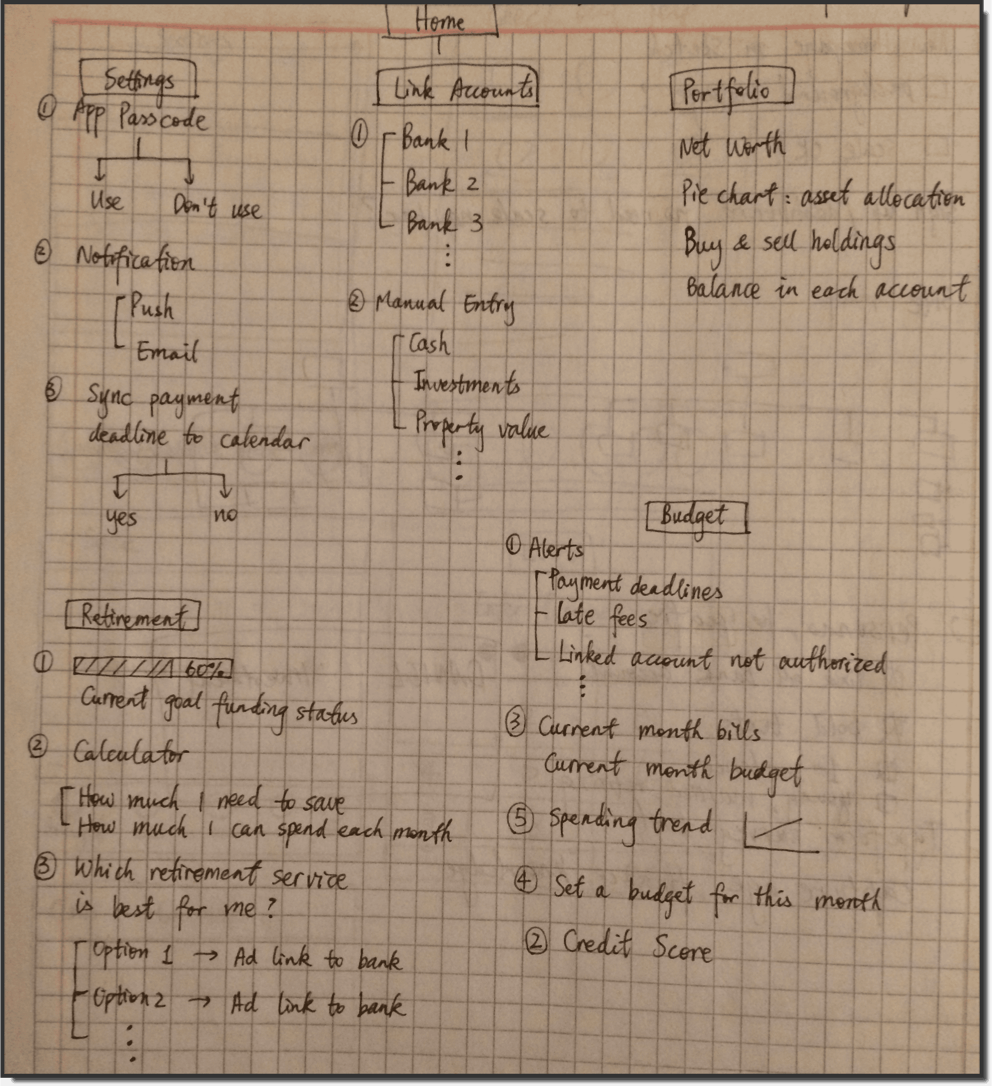 Home
Settings
① App Passcode
Use
Don't use
② Notification
Push
Email
③ Sync payment
deadline to calendar
yes
no
Link Accounts
① Bank 1
Bank 2
Bank 3
② Manual Entry
Cash
Investments
Property value
Portfolio
Net Worth
Pie chart : asset allocation
Buy & sell holdings
Balance in each account
Retirement
① 60%
Current goal funding status
② Calculator
How much I need to save
How much I can spend each month
③ Which retirement service
is best for me ?
Option 1 → Ad link to bank
Option 2 → Ad link to bank
Budget
① Alerts
Payment deadlines
Late fees
Linked account not authorized
③ Current month bills
Current month budget
⑤ Spending trend
④ Set a budget for this month
② Credit Score